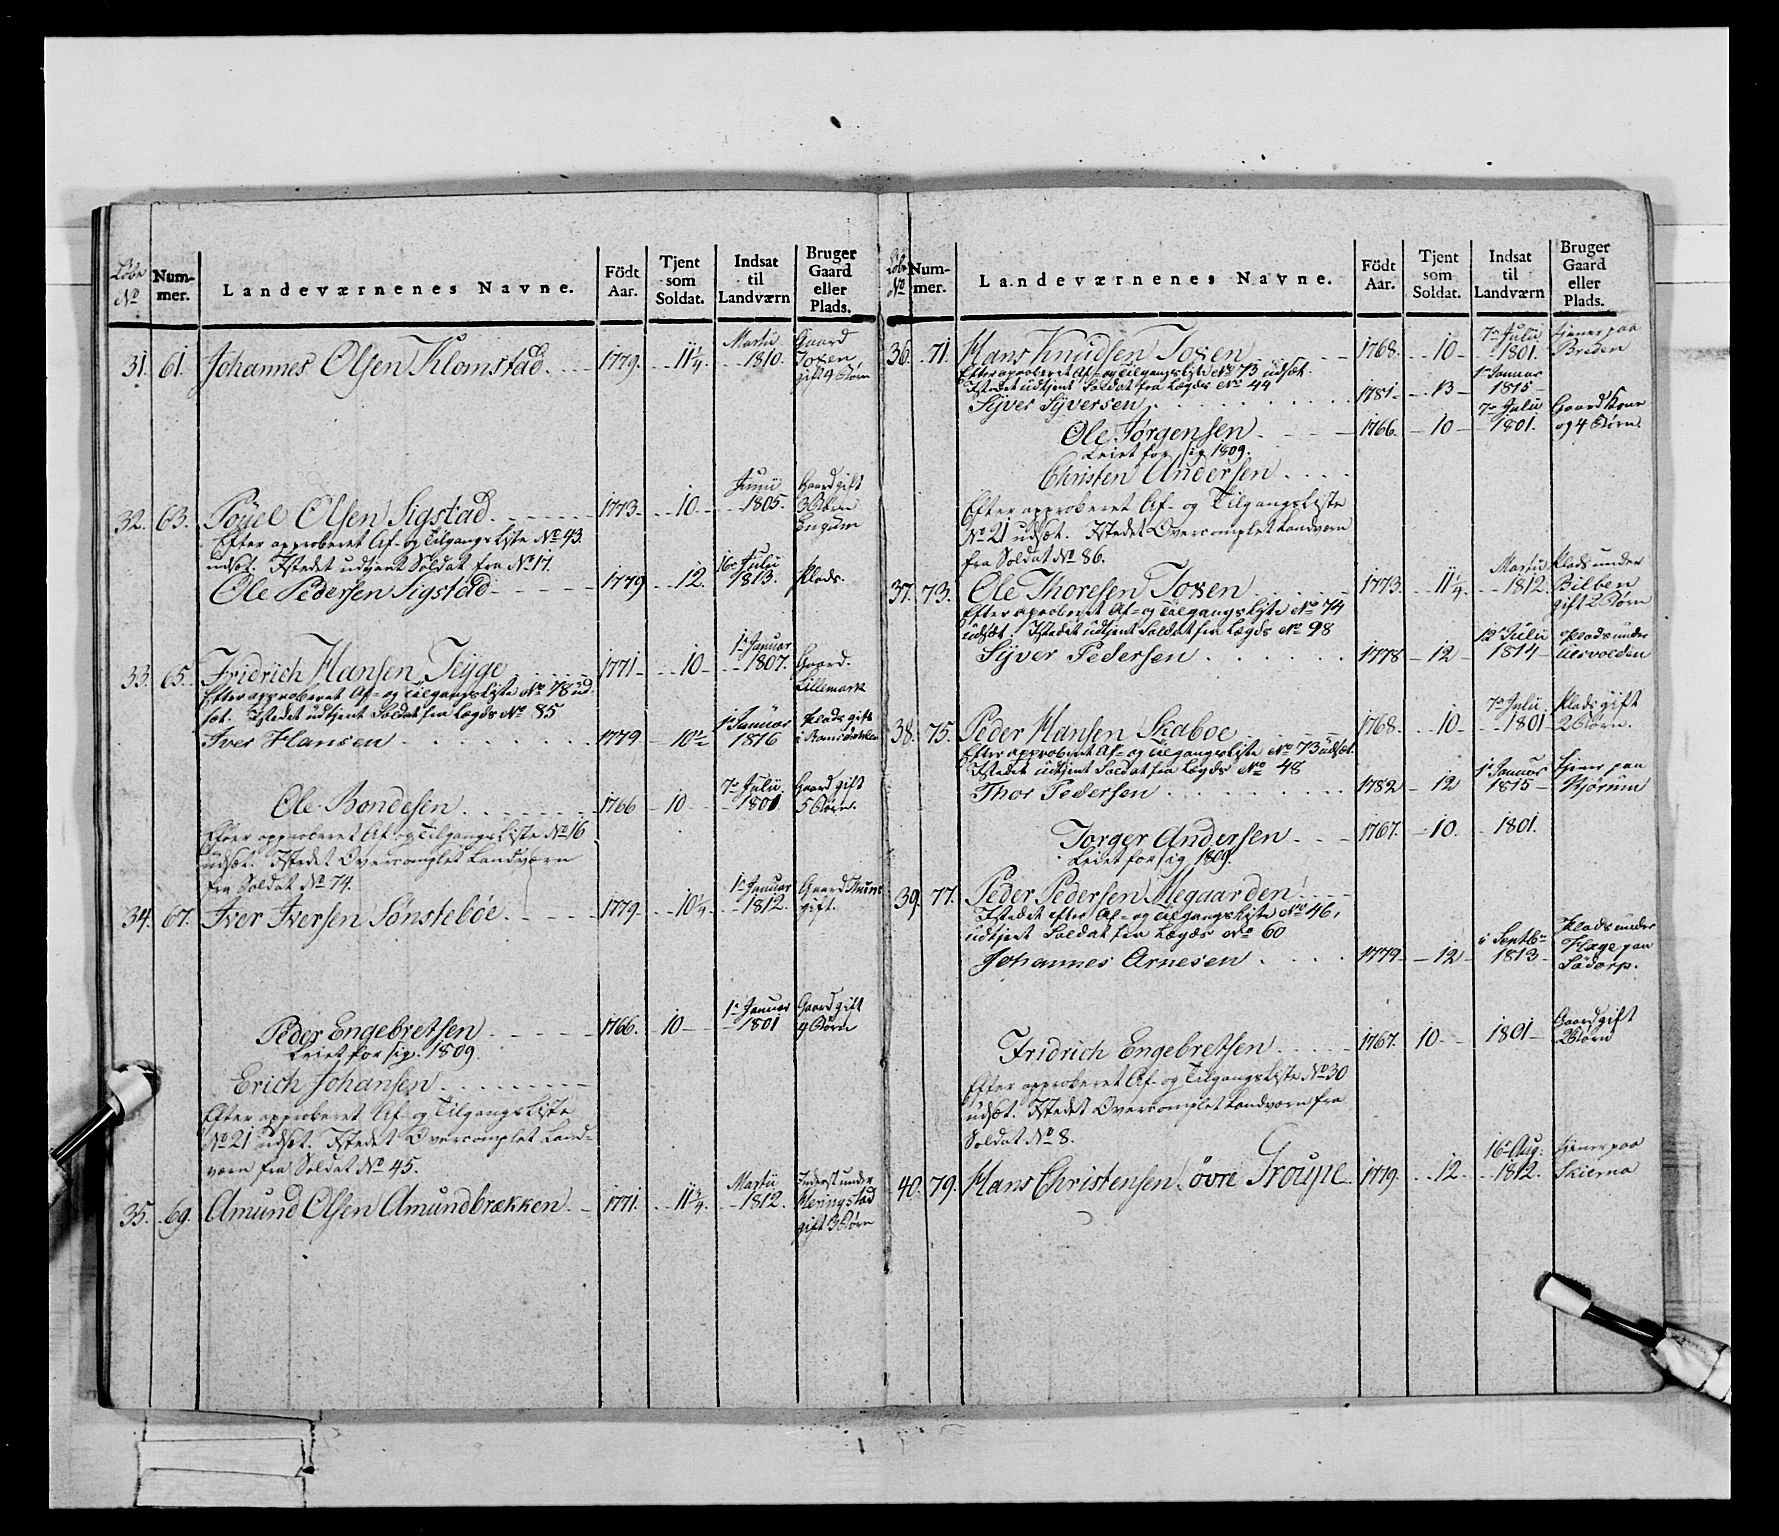 Løbe No Nummer. Landeværnenes Navne. Födt Aar. Tjent som Soldat. Indsat til Landværn Bruger Gaard eller Plads.
31. 61. Johannes Olsen Klomstad. 1779. 11¼. Martii 1810. Gaard Toxen gift 4 Børn
32. 63. Povel Olsen Sigstad. 1773. 10 Junii 1805. Gaard gift 3 Børn
Efter approberet Af- og Tilgangs Liste No 43.
udsæt. Istedet udtjent Soldat fra No 17.
Ole Pedersen Sigstad 1779 12. 16 Julii 1813. Plads.
33. 65. Fridrich Hansen Tryge 1771 10 1 Januar 1807. Gaard. Lillemark
Efter approberet Af- og Tilgangsliste No 78 ud-
sæt. Istedet udtjent Soldat fra Lægds No 85
Iver Hansen 1779 10½ 1 Januar 1816 Plads gift i Romsdahlen
Ole Bondesen. 1766 10 7 Julii 1801 Gaard gift 5 Børn.
Efter approberet Af- og Tilgangs Liste No 16
udsæt. Istedet Overcomplet Landværn
fra Soldat No 74.
34. 67. Iver Iversen Sønsteböe. 1779. 10¼. 1 Januar 1812. Gaard gift.
Peder Engebretsen 1766. 10 1 Januar 1801 Gaard gift 4 Børn
Leiet for sig. 1809.
Erich Johansen
Efter approberet Af- og Tilgangs Liste
No 21 udsæt. Istedet Overcomplet Land-
værn fra Soldat No 45.
35. 69. Amund Olsen Amundbrækken 1771. 11¾. Martii 1812. Inderst under Kleringstad gift 3 Børn
Løbe No Nummer. Landeværnenes Navne. Födt Aar. Tjent som Soldat. Indsat til Landværn Bruger Gaard eller Plads.
36. 71. Hans Knudsen Toxen 1768. 10 7 Julii 1801. tjener paa Breden
Efter approberet Af- og Tilgangsliste No 73 udsæt.
Istedet udtjent Soldat fra Lægds No 44
Syver Syversen 1781 13 1 Januar 1815
Ole Jörgensen 1766. 10 7 Julii 1801. Gaard Kone og 4 Børn
Leiet for sig 1809.
Christen Andersen
Efter approberet Af- og Tilgangs Liste
No 21 udsæt. Istedet Overcomplet Landværn
fra Soldat No 86.
37. 73. Ole Thoresen Toxen 1773. 11¼. Martii 1812. Plads under Bilben gift 2 Børn
Efter aproberet Af- og Tilgangsliste No 74
udsæt. Istedet udtjent Soldat fra Lægds No 98
Syver Pedersen 1778 12 12 Julii 1814 Plads under
38. 75. Peder Hansen Skaboe 1768. 10 7 Julii 1801 Plads gift 2 Børn.
Efter approberet Af- og Tilgangsliste No 73 udsæt.
Istedet udtjent Soldat fra Lægds No 48
Thor Pedersen 1782 12 1 Januar 1815 tjener paa Kjörum
Torger Andersen 1767. 10. 1801.
Leiet for sig 1809.
39. 77. Peder Pedersen Megaarden
Istedet efter Af- og Tilgangsliste No 46,
udtjent Soldat fra Lægds No 60
Johannes Arnesen 1779 12 i Septbr 1813 Plads under Hage paa Södorp.
Fridrich Engebretsen 1767. 10 1801 Gaard gift 2 Børn
Efter approberet Af- og Tilgangs Liste No 30
udsæt. Istedet Overcomplet Landværn fra
Soldat No 8.
40. 79. Hans Christensen övre Froupe 1779. 12. 16 Aug: 1812. tjener paa Skierna